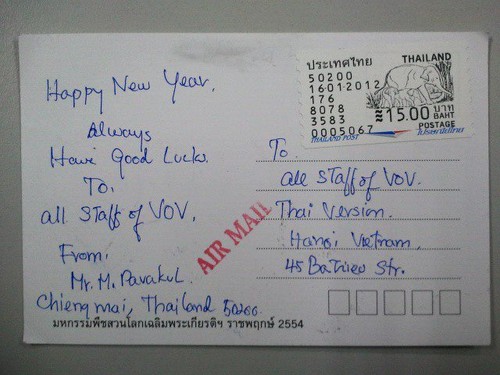 Happy New Year.
Always
Have Good Lucks.
To.
all Staff of VOV.
From.
Mr. M. Pavakul.
Chiengmai, Thailand 50200
มหกรรมพืชสวนโลกเฉลิมพระเกียรติฯ ราชพฤกษ์ 2554
AIR MAIL
ประเทศไทย THAILAND
50200
16-01-2012
176
8078
3583
0005067
≈15.00 บาท
BAHT
POSTAGE
THAILAND POST ไปรษณีย์ไทย
To.
all Staff of VOV.
Thai Version.
Hanoi Vietnam.
45 BaTrieu Str.